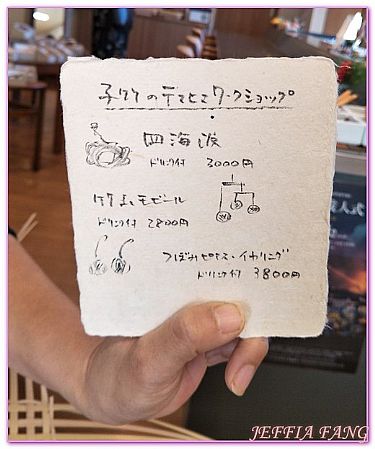 竹のテマヒマワークショップ
四海波
ドリンク付 3000円
竹 モビール
ドリンク付 2800円
つぼみピアス・イヤリング
ドリンク付 3800円
JEFFIA FANG